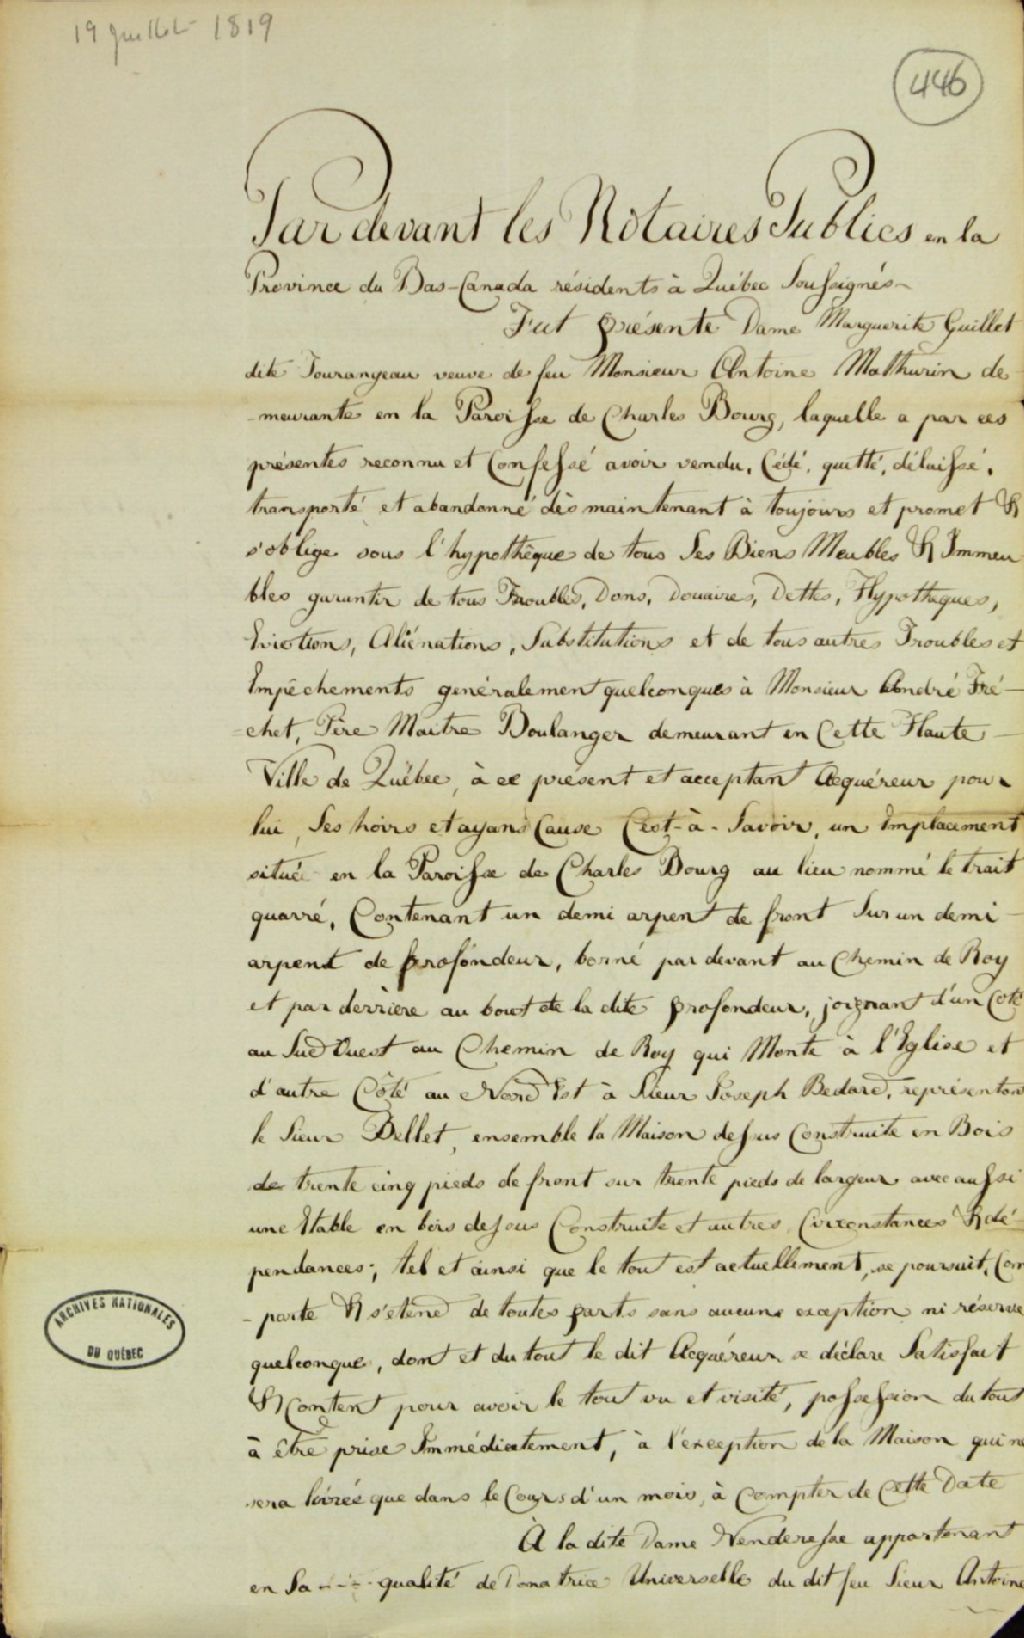 19 Juillet 1819
446
Par devant les Notaires Publics en la
Province du Bas-Canada résidents à Québec Soussignés
Fut présente Dame Marguerite Guillet
dite Tourangeau veuve de feu Monsieur Antoine Mathurin de-
-meurante en la Paroisse de Charles Bourg, laquelle a par ces
présentes reconnu et Confessé avoir vendu, Cédé, quitté, délaissé,
transporté et abandonné dès maintenant à toujours et promet &
s'oblige sous l'hypothêque de tous Ses Biens Meubles & Immeu
bles garantir de tous Troubles, Dons, Douaires, Dettes, Hypotheques,
Evictions, Aliénations, Substitutions et de tous autres Troubles et
Empêchements genéralement quelconques à Monsieur André Fré-
-chet, Père Maitre Boulanger demeurant en Cette Haute-
Ville de Québec, à ce présent et acceptant Acquéreur pour
lui, Ses hoirs et ayans Cause C'est-à-Savoir, un Emplacement
situé en la Paroisse de Charles Bourg au lieu nommé le trait
quarré, Contenant un demi arpent de front Sur un demi-
arpent de profondeur, borné par devant au Chemin de Roy
et par derriere au bout de la dite profondeur, joignant d'un Coté
au Sud Ouest au Chemin de Roy qui Monte à l'Eglise et
d'autre Côté au Nord Est à Sieur Joseph Bedard, représentan
le Sieur Bellet, ensemble la Maison dessus Construite en Bois
de trente cinq pieds de front sur trente pieds de largeur avec aussi
une Etable en bois dessus Construite et autres Circonstances & dé-
pendances; tel et ainsi que le tout est actuellement, se poursuit, Com
-porte & s'étend de toutes parts sans aucune exception ni réserve
quelconque, dont et du tout le dit Acquéreur se déclare Satisfait
& Content pour avoir le tout vu et visité, possession du tout
à être prise Immédiatement, à l'exception de la Maison qui ne
sera livrée que dans le Cours d'un mois, à Compter de Cette Date
À la dite Dame Venderesse appartenant
en Sa --- qualité de Donatrice Universelle du dit feu Sieur Antoine
ARCHIVES NATIONALES
DU QUÉBEC